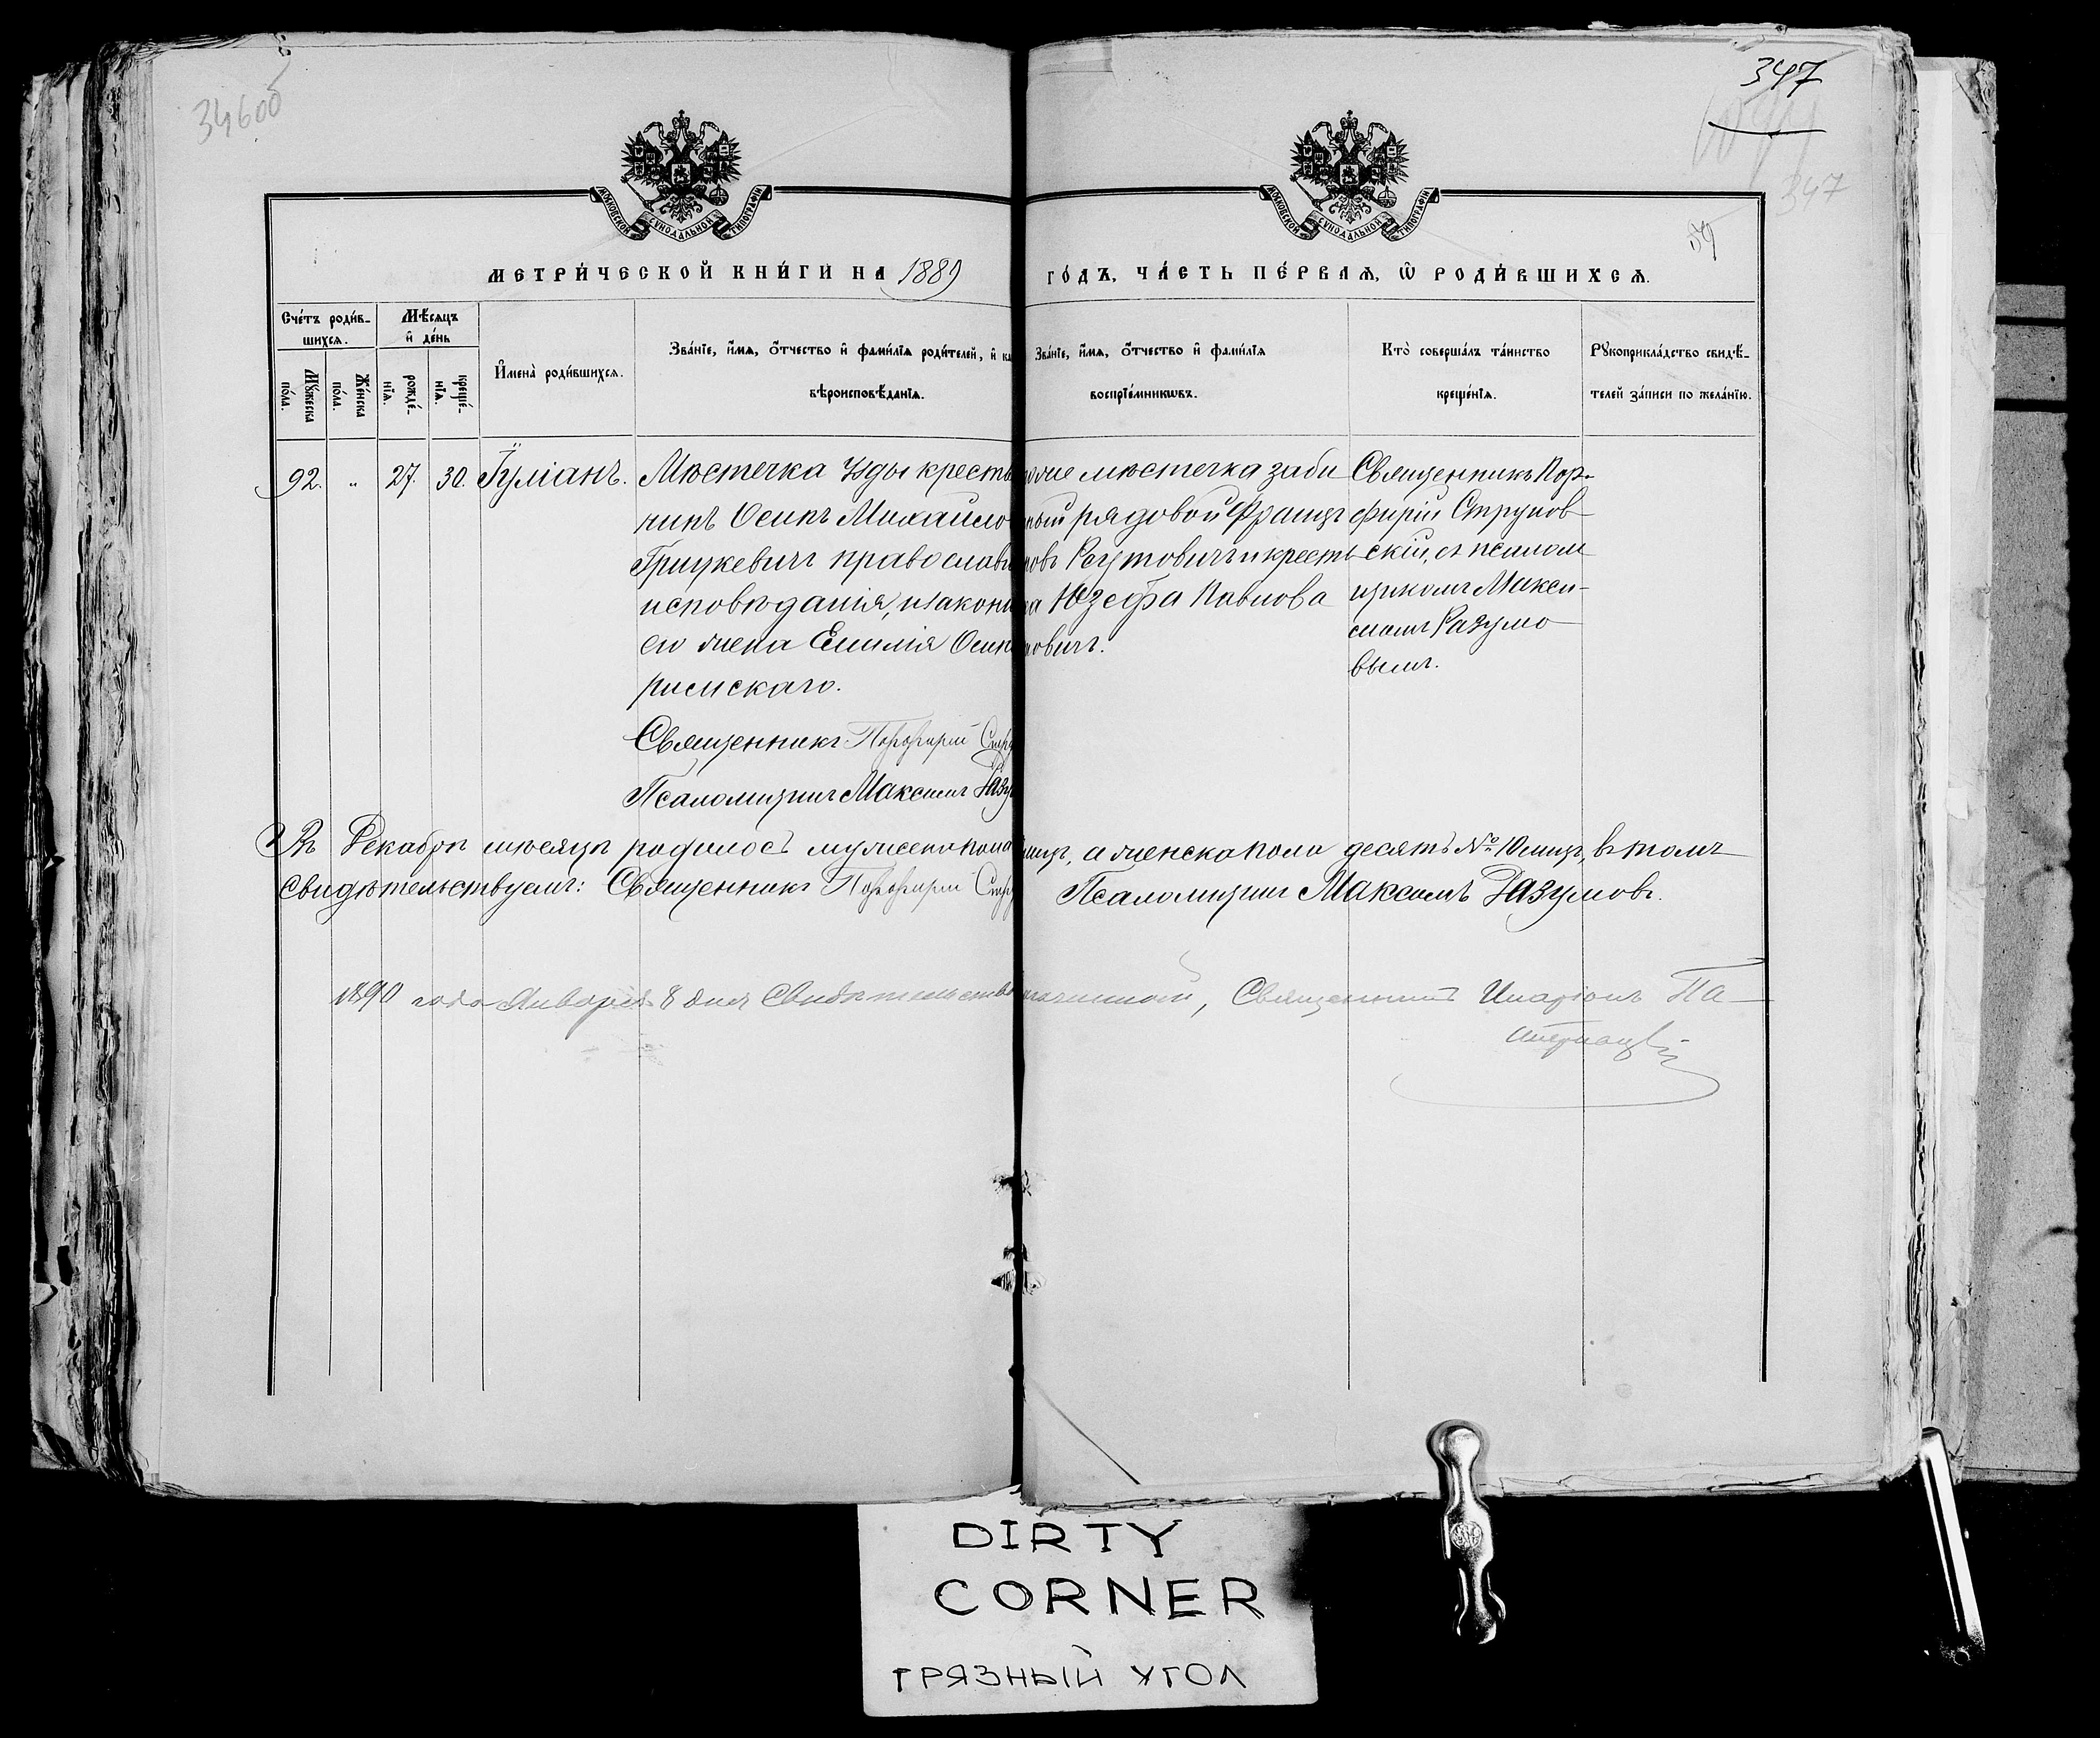 346об
347
347
МОСКОВСКОЙ СУНОДАЛЬНОЙ ТИПОГРАФІИ
МОСКОВСКОЙ СУНОДАЛЬНОЙ ТИПОГРАФІИ
МЕТРИ́ЧЕСКОЙ КНИ́ГИ НА 1889
ГО́ДЪ, ЧА́СТЬ ПЕ́РВАѦ, Ѿ РОДИ́ВШИХСѦ.
Сче́тъ роди́в-
шихсѧ.
Мѣ́сѧцъ
и҆ де́нь
И҆мена̀ роди́вшихсѧ.
Зва́нїе, и҆́мѧ, ѻ҆́тчество и҆ фами́лїѧ роди́телей, и҆ ка
вѣроисповѣ́данїѧ.
Зва́нїе, и҆́мѧ, ѻ҆́тчество и҆ фами́лїѧ
воспрїе́мникѡвъ.
Кто̀ соверша́лъ та́инство
креще́нїѧ.
Рꙋкоприкла́дство свидѣ́-
телей за́писи по жела́нїю.
Мꙋ́жеска по́ла.
Же́нска по́ла.
рожде́-нїѧ.
креще́-нїѧ.
92. „ 27. 30. Іуліанъ.
Мѣстечка Узды кресть
нинъ Осипъ Михайло
Грицкевичъ православн
исповѣданія, и законн
его жена Емилія Осип
римскаго.
Священникъ Порфирій Стру
Псаломщикъ Максимъ Разу
мѣстечка заби
рядовой Францъ
и кресть
Юзефа Павлова
новичъ.
Священникъ Пор-
фирій Струков
скій, съ псалом
щикомъ Макси-
момъ Разумо
вымъ.
Въ Декабрѣ мѣсяцѣ родилось мужеска пола
а женска пола десять № 10 лицъ, въ томъ
свидѣтельствуемъ: Священникъ Порфирій Стру
Псаломщикъ Максимъ Разумовъ.
1890 года Января 8 дня Свидѣтельство
Священникъ Иларіонъ Па-
DIRTY
CORNER
ГРЯЗНЫЙ УГОЛ